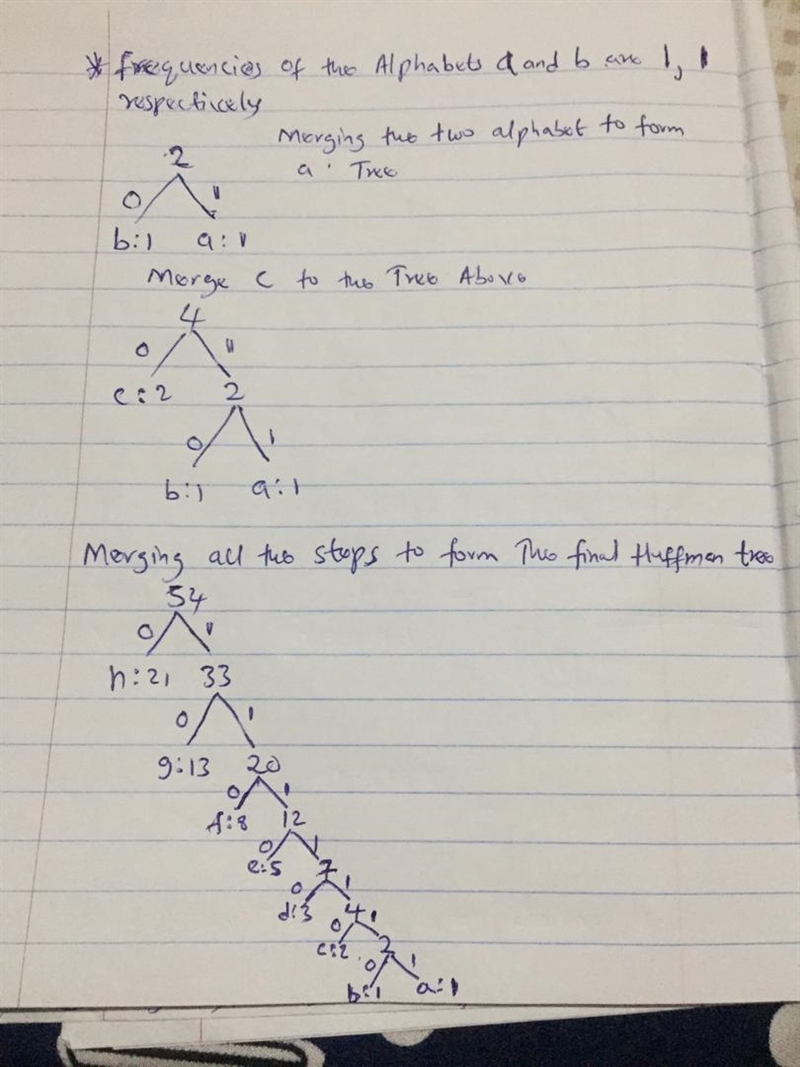 * frequencies of the Alphabets a and b are 1, 1
respectively
Merging the two alphabet to form
a Tree
2
0 1
b:1 a:1
Merge C to the Tree Above
4
0 1
c:2 2
0 1
b:1 a:1
Merging all the steps to form The final Huffman tree
54
0 1
h:21 33
0 1
g:13 20
0 1
f:8 12
0 1
e:5 7
0 1
d:3 4
0 1
c:2 2
0 1
b:1 a:1